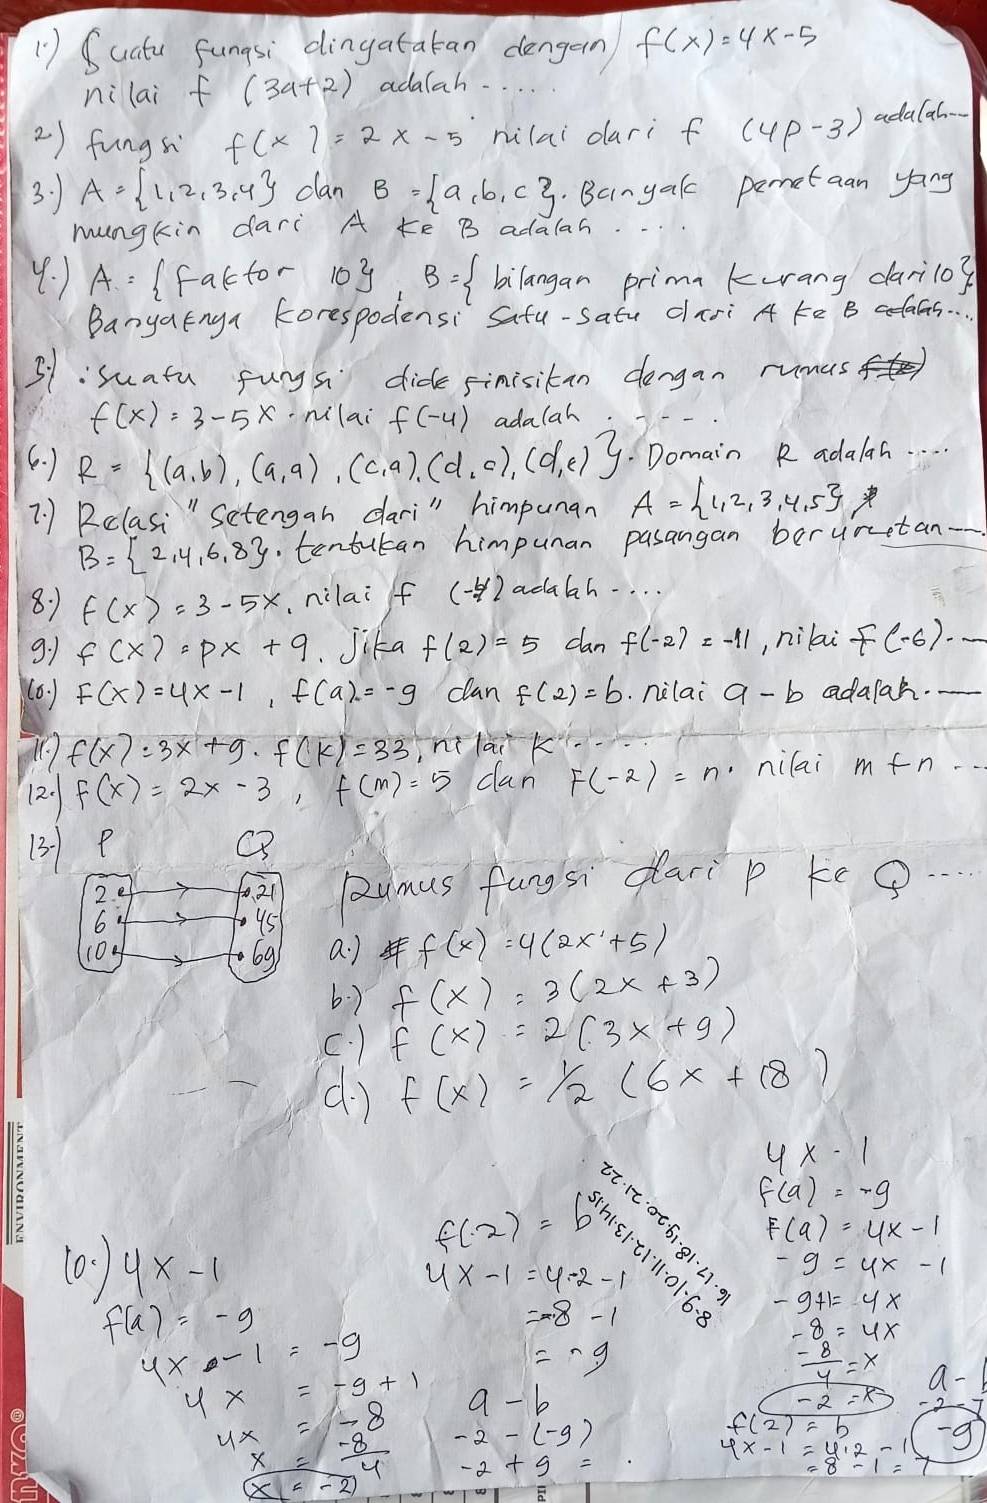 1.) Suatu fungsi dinyatakan dengan f(x) = 4x - 5
nilai f (3a+2) adalah .....
2) fungsi f(x) = 2x - 5 nilai dari f (4p - 3) adalah...
3.) A = {1, 2, 3, 4} dan B = {a, b, c}. Banyak pemetaan yang
mungkin dari A ke B adalah ....
4.) A = {faktor 10}, B = {bilangan prima kurang dari 10}
Banyaknya korespodensi satu-satu dari A ke B adalah....
5.) : suatu fungsi didefinisikan dengan rumus
f(x) = 3 - 5x. nilai f(-4) adalah .....
6.) R = {(a,b), (a,a), (c,a), (d,c), (d,e)}. Domain R adalah ....
7.) Relasi "setengah dari" himpunan A = {1, 2, 3, 4, 5},
B = {2, 4, 6, 8}. tentukan himpunan pasangan berurutan
8.) f(x) = 3 - 5x, nilai f (-4) adalah ....
9.) f(x) = px + q. Jika f(2) = 5 dan f(-2) = -11, nilai f(-6)..
10.) F(x) = 4x - 1, f(a) = -9 dan f(2) = b. nilai a - b adalah..
11.) f(x) = 3x + 9. f(k) = 33, nilai k ....
12.) f(x) = 2x - 3, f(m) = 5 dan F(-2) = n. nilai m + n ...
13.) P Q
2 21
6 45
10 69
Rumus fungsi dari P ke Q ....
a.) f(x) = 4(2x + 5)
b.) f(x) = 3(2x + 3)
c.) f(x) = 2(3x + 9)
d.) f(x) = 1/2 (6x + 18)
10.) 4x - 1
f(a) = -9
4x - 1 = -9
4x = -9 + 1
4x = -8
x = -8/4
x = -2
f(2) = b
4x - 1 = 4·2 - 1
= -8 - 1
= -9
a - b
-2 - (-9)
-2 + 9 =
22.21.20.19.18.17.16
8.9.10.11.12.13.14.15
4x - 1
f(a) = -9
F(a) = 4x - 1
-9 = 4x - 1
-9+1 = 4x
-8 = 4x
-8/4 = x
-2 = x
f(2) = b
4x - 1 = 4.2 - 1
= 8 - 1 = 7
a - b
-2 - 7
-9
ENVIRONMENT